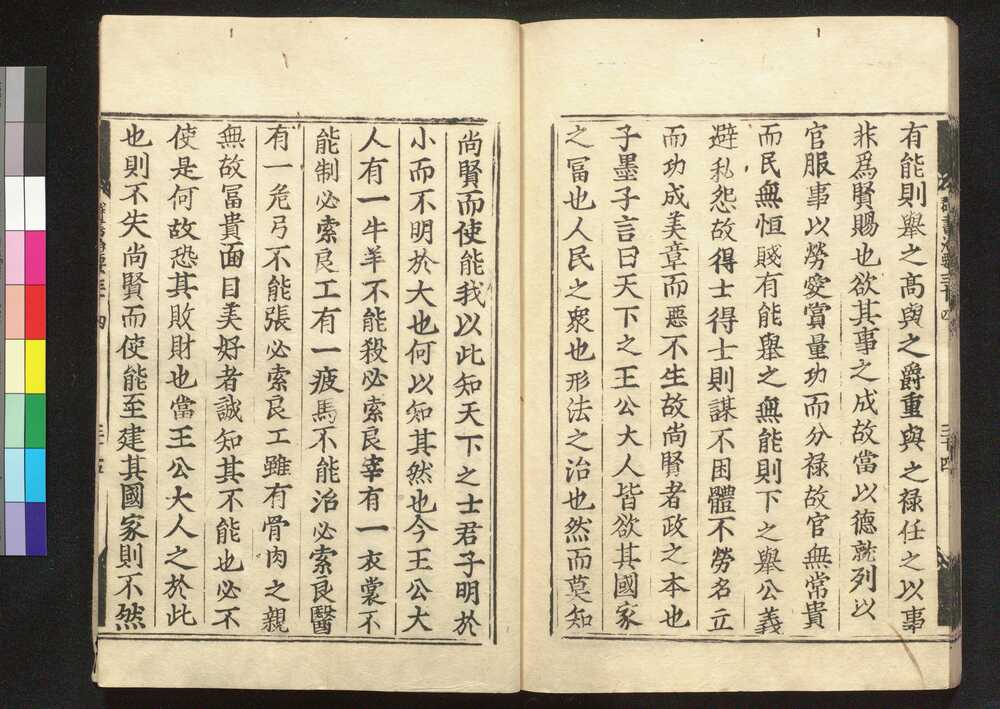 有能則舉之高與之爵重與之禄任之以事
非爲賢賜也欲其事之成故當以德就列以
官服事以勞受賞量功而分禄故官無常貴
而民無恒賤有能舉之無能則下之舉公義
避私怨故得士得士則謀不困體不勞名立
而功成美章而惡不生故尚賢者政之本也
子墨子言曰天下之王公大人皆欲其國家
之冨也人民之衆也形法之治也然而莫知
尚賢而使能我以此知天下之士君子明於
小而不明於大也何以知其然也今王公大
人有一牛羊不能殺必索良宰有一衣裳不
能制必索良工有一疲馬不能治必索良醫
有一危弓不能張必索良工雖有骨肉之親
無故冨貴面目美好者誠知其不能也必不
使是何故恐其敗財也當王公大人之於此
也則不失尚賢而使能至建其國家則不然